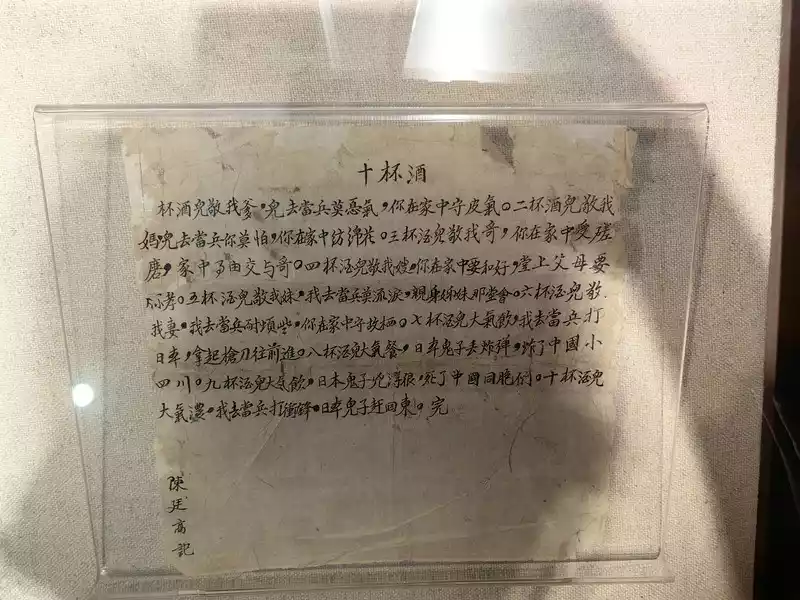 十杯酒
杯酒兒敬我爹，兒去當兵莫惡氣，你在家中守皮氣。二杯酒兒敬我
媽，兒去當兵你莫怕，你在家中紡綿花。三杯酒兒敬我哥，你在家中受磋
磨，家中交与哥。四杯酒兒敬我嫂，你在家中要和好，堂上父母要
孝。五杯酒兒敬我妹，我去當兵莫流淚，親身姊妹那堂會。六杯酒兒敬
我妻，我去當兵耐煩些，你在家中守。七杯酒兒大氣飲，我去當兵打
日本，拿起槍刀往前進。八杯酒兒大氣餐，日本鬼子丢炸弹，炸了中國小
四川。九杯酒兒大氣飲，日本鬼子狠，死了中國同胞们。十杯酒兒
大氣濃，我去當兵打衝鋒，日本鬼子赶回東。完
陳廷高記